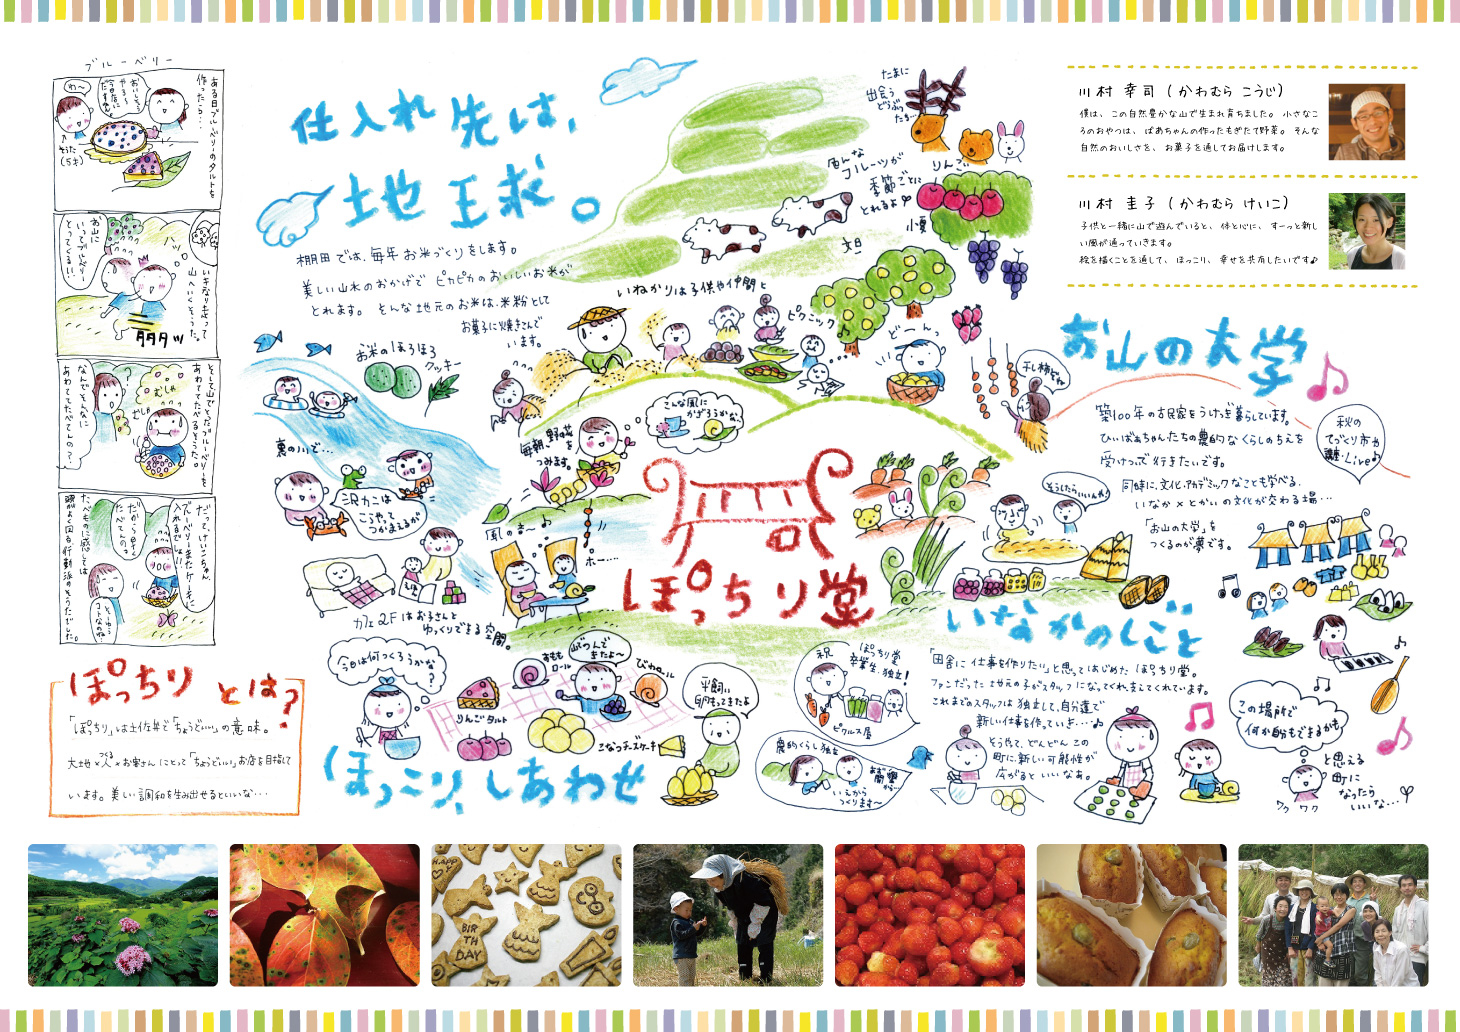 ブルーベリー
ある日ブルーベリーのタルトを
作ったら…
わ〜
そうた
(5才)
お山に
いってブルーベリー
とってくるい!
いきなり走って
山へいくそうた。
そして山でとったブルーベリーを
あわててたべるそうた。
むしゃ
むしゃ
なんでそんなに
あわててたべてんの?
だって、けいこちゃん、
ブルーベリーまたケーキに
入れるでしょ!!
だから今日中に
たべてんの。
仕入れ先は、
地球。
棚田では、毎年お米づくりをします。
美しい山水のおかげで ピカピカのおいしいお米が
とれます。 そんな地元のお米は、米粉として
お菓子に焼きこんで
います。
たまに
出会う
どうぶつ
たち…
いろんな
フルーツが
季節ごとに
とれるよ
りんご
小夏
文旦
いねかりは子供や仲間と
ピクニック♪
ど〜んっ
干し柿だね
お米のほろほろ
クッキー
裏の川で…
沢カニは
こうやって
つかまえるが
毎朝、野菜を
つみます。
こんな風に
かざろうかな。
風のまーま
ホー……
カフェ2Fはお子さんと
ゆっくりできる空間。
ぽっちり堂
川村 幸司 (かわむら こうじ)
僕は、この自然豊かな山で生まれ育ちました。小さなこ
ろのおやつは、ばあちゃんの作ったもぎたて野菜。そんな
自然のおいしさを、お菓子を通してお届けします。
川村 圭子 (かわむら けいこ)
子供と一緒に山で遊んでいると、体と心に、すーっと新し
い風が通っていきます。
絵を描くことを通して、ほっこり、幸せを共有したいです♪
お山の大学
築100年の古民家をうけつぎ暮らしています。
ひいばあちゃんたちの農的なくらしのちえを
受けついで行きたいです。
同時に、文化、アカデミックなことも学べる、
いなか×とかいの文化が交わる場…
「お山の大学」を
つくるのが夢です。
秋の
てづくり市や
謙・Live♪
そうしたらいいんや!
いなかのしごと
「田舎に仕事を作りたい」と思ってはじめた ぽっちり堂。
ファンだった 地元の子がスタッフになってくれ支えてくれています。
これまでのスタッフは 独立して、自分達で
新しい仕事を作っていき…♪
そうやって、どんどん この
町に、新しい可能性が
広がると いいなあ。
祝
ぽっちり堂
卒業生、独立!
ピクルス屋
農的くらし独立
いえから
つくります〜
この場所で
何か自分もできるかも
と思える
町に
なったら
いいな…
ワク ワク
ほっこり、しあわせ
今日は何つくろうかな?
りんごタルト
もも
ロール
つんで
きたよ〜
びわロール
こなつチーズケーキ
平飼い
卵もってきたよ
ぽっちり とは?
「ぽっちり」は土佐弁で「ちょうどいい」の意味。
大地×つくる人×お客さん にとって「ちょうどいい」お店を目指して
います。美しい調和を生み出せるといいな…
HAPPY
BIRTH
DAY